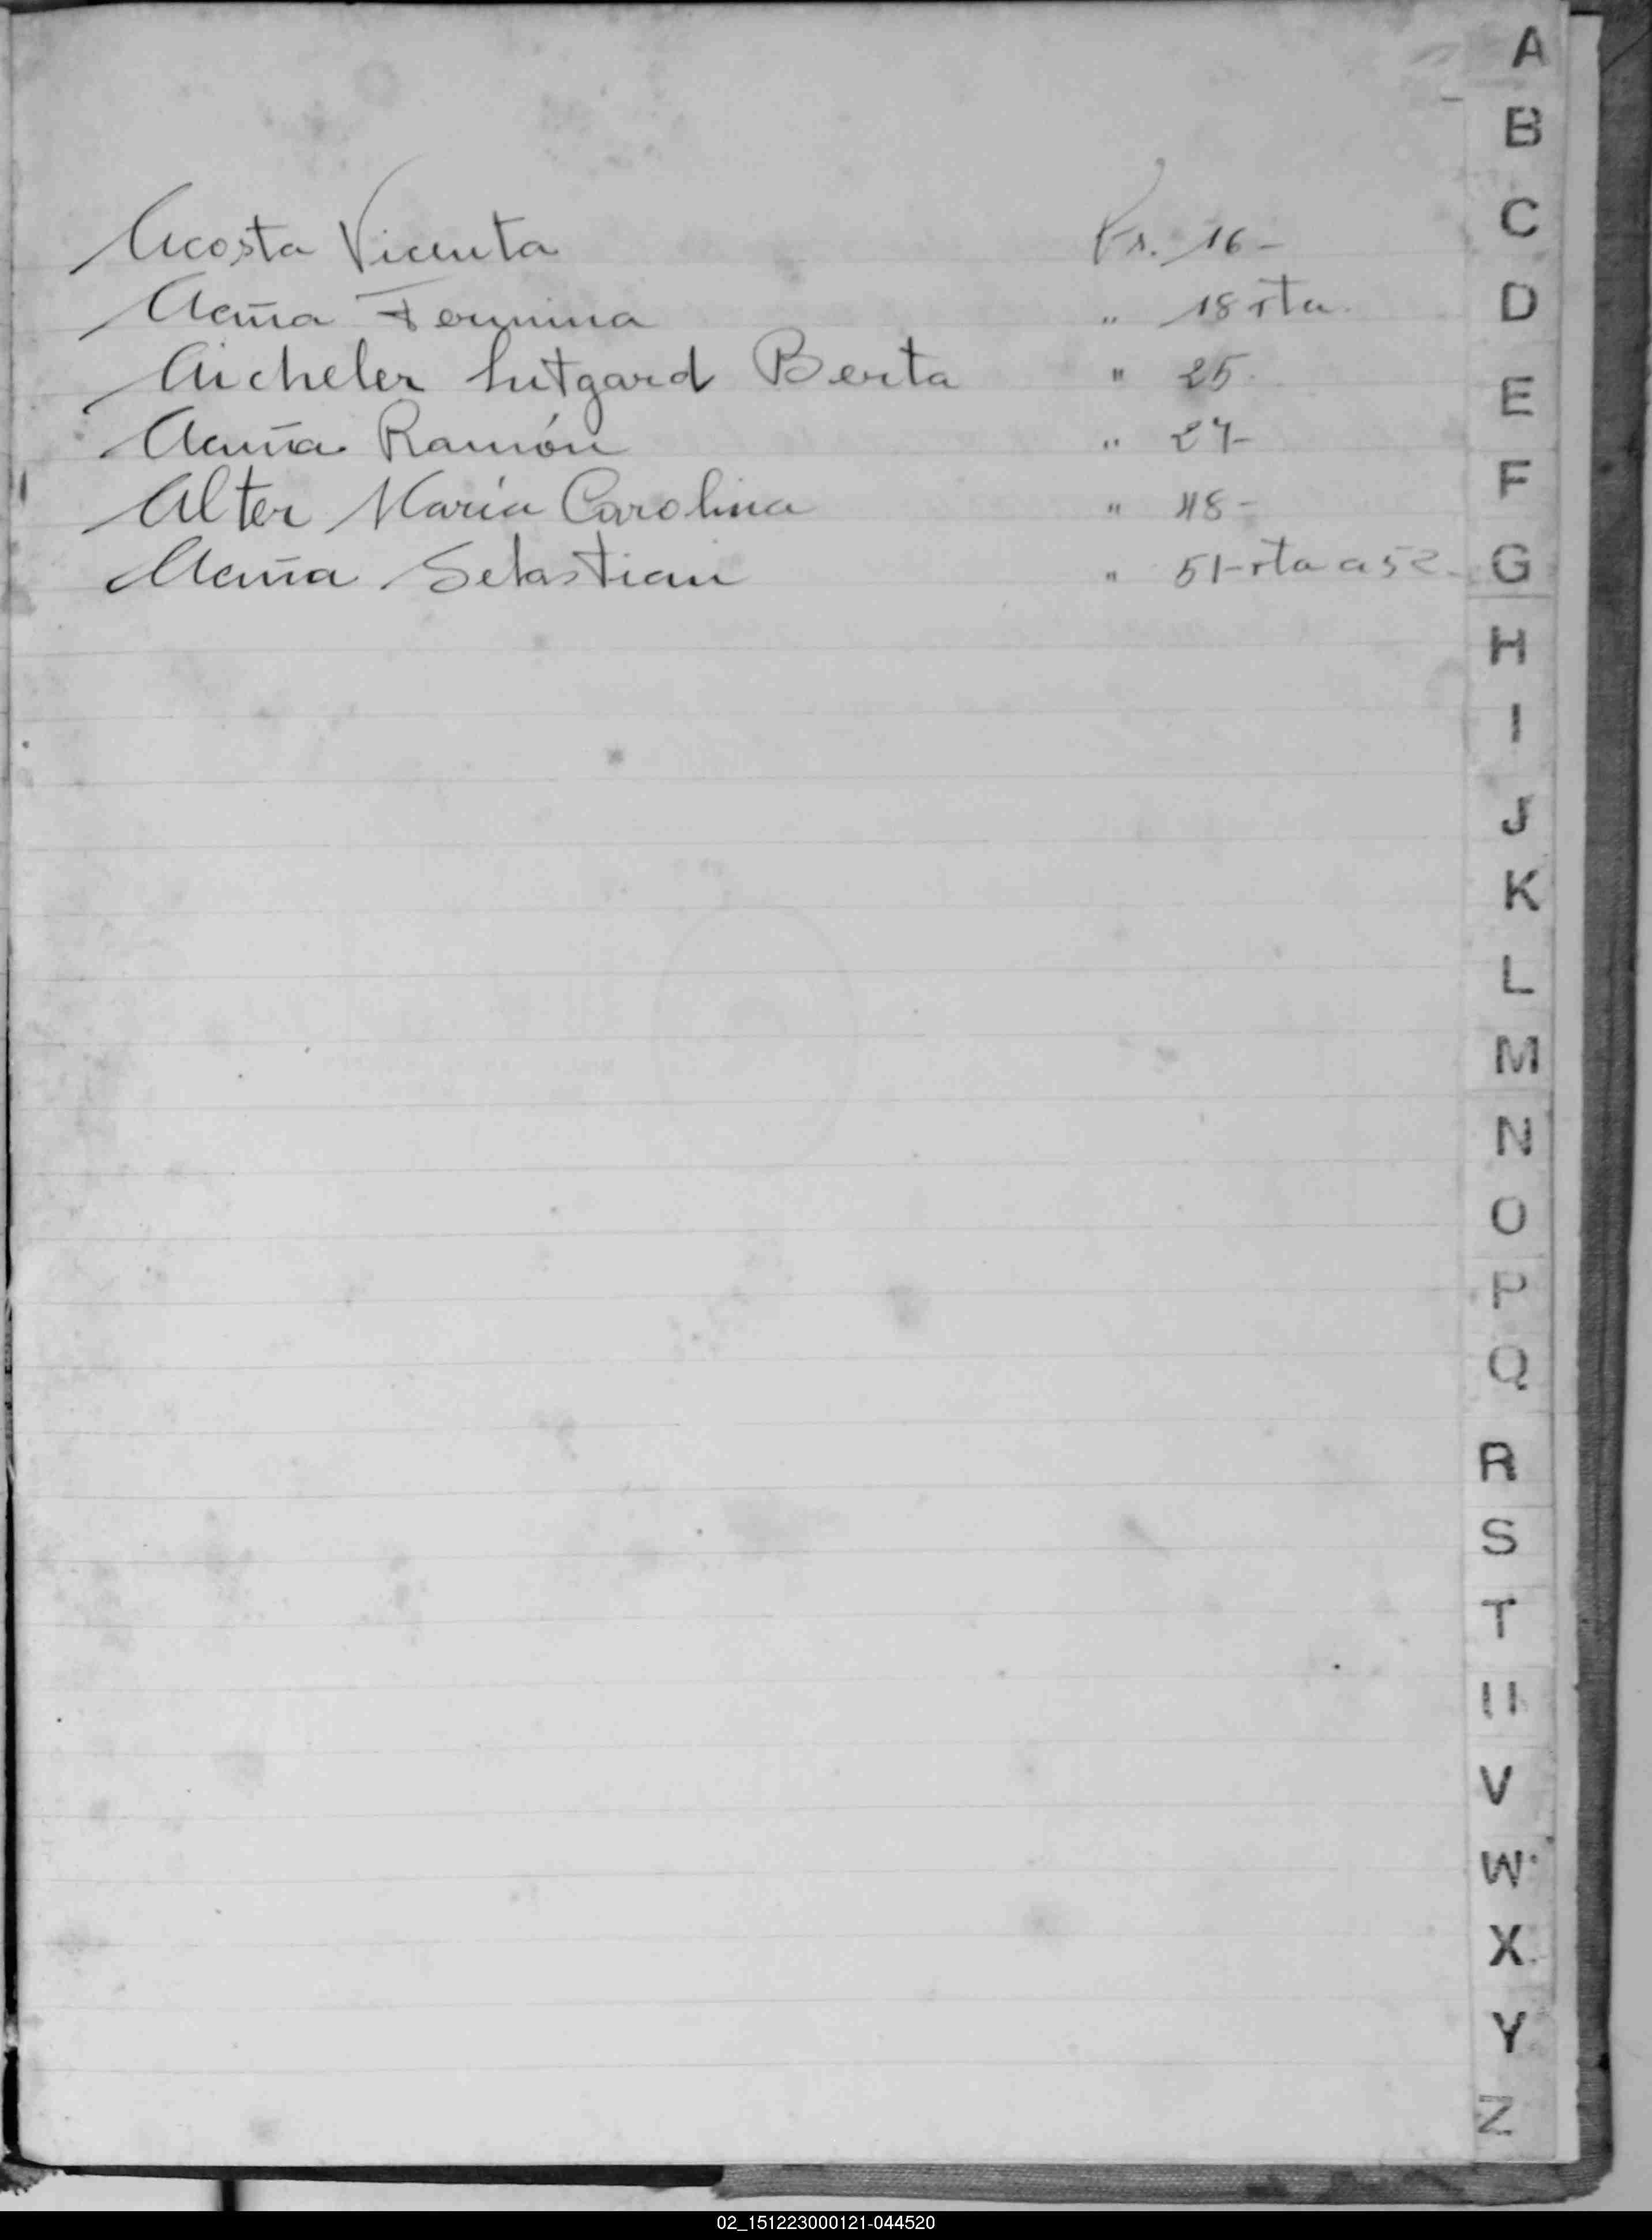 A
B
C
Acosta Vicenta Fs. 16-
D
Acuña Fermina " 18 vta.
Aicheler Lutgard Berta " 25.
E
Acuña Ramón " 27-
F
Alter María Carolina " 48-
G
Acuña Sebastian " 51-vta a 52-
H
I
J
K
L
M
N
O
P
Q
R
S
T
U
V
W
X
Y
Z
02_151223000121-044520